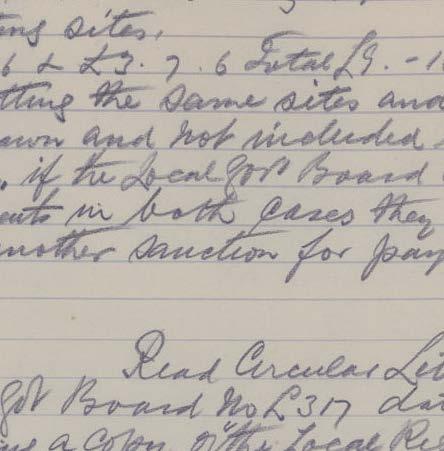 ing sites.
6 & £3. 7. 6 Total £9. - 1
tting the same sites and
awn and not included
if the Local Govt Board
ents in both cases they
nother sanction for pay
Read Circular Let
Govt Board No L317 dat
ing a copy of "the Local Re